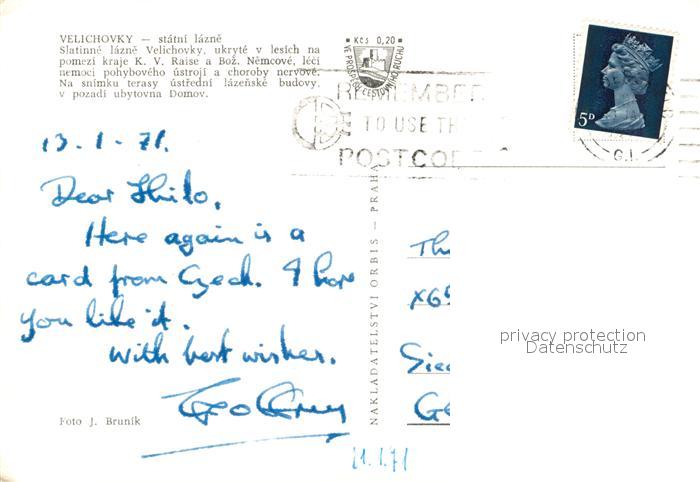 VELICHOVKY — státní lázně
Slatinné lázně Velichovky, ukryté v lesích na
pomezí kraje K. V. Raise a Bož. Němcové, léčí
nemoci pohybového ústrojí a choroby nervové.
Na snímku terasy ústřední lázeňské budovy,
v pozadí ubytovna Domov.
Kčs 0,20
VE PROSPĚCH CESTOVNÍHO RUCHU
REMEMBER
TO USE TH
POSTCOD
5D
G.I.
13.1.71.
Dear Thilo,
Here again is a
card from Czech. I hope
you like it.
With best wishes.
21.1.71
Foto J. Bruník
NAKLADATELSTVÍ ORBIS — PRAHA
Th
Sie
Ge
privacy protection
Datenschutz